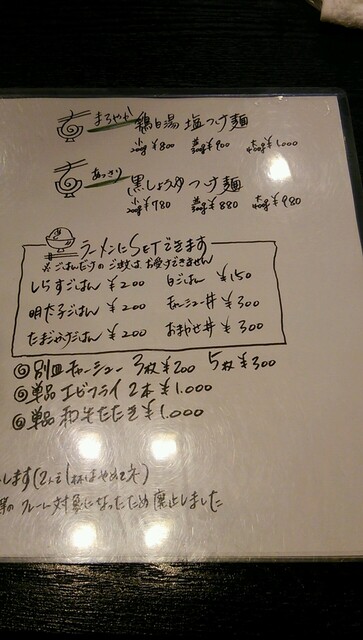 まろやか 鶏白湯 塩つけ麺
小200g ¥800 並300g ¥900 大400g ¥1,000
あっさり 黒しょうゆつけ麺
小200g ¥780 並300g ¥880 大400g ¥980
ラーメンにSETできます
※ごはんだけのご注文はお受けできません
しらすごはん ¥200 白ごはん ¥150
明太子ごはん ¥200 チャーシュー丼 ¥300
たまごかけごはん ¥200 おまかせ丼 ¥300
◎別皿チャーシュー 3枚¥200 5枚¥300
◎単品エビフライ 2本¥1,000
◎単品和牛たたき¥1,000
します(2人で1杯はやめてネ)
クレーム対象になったため廃止しました